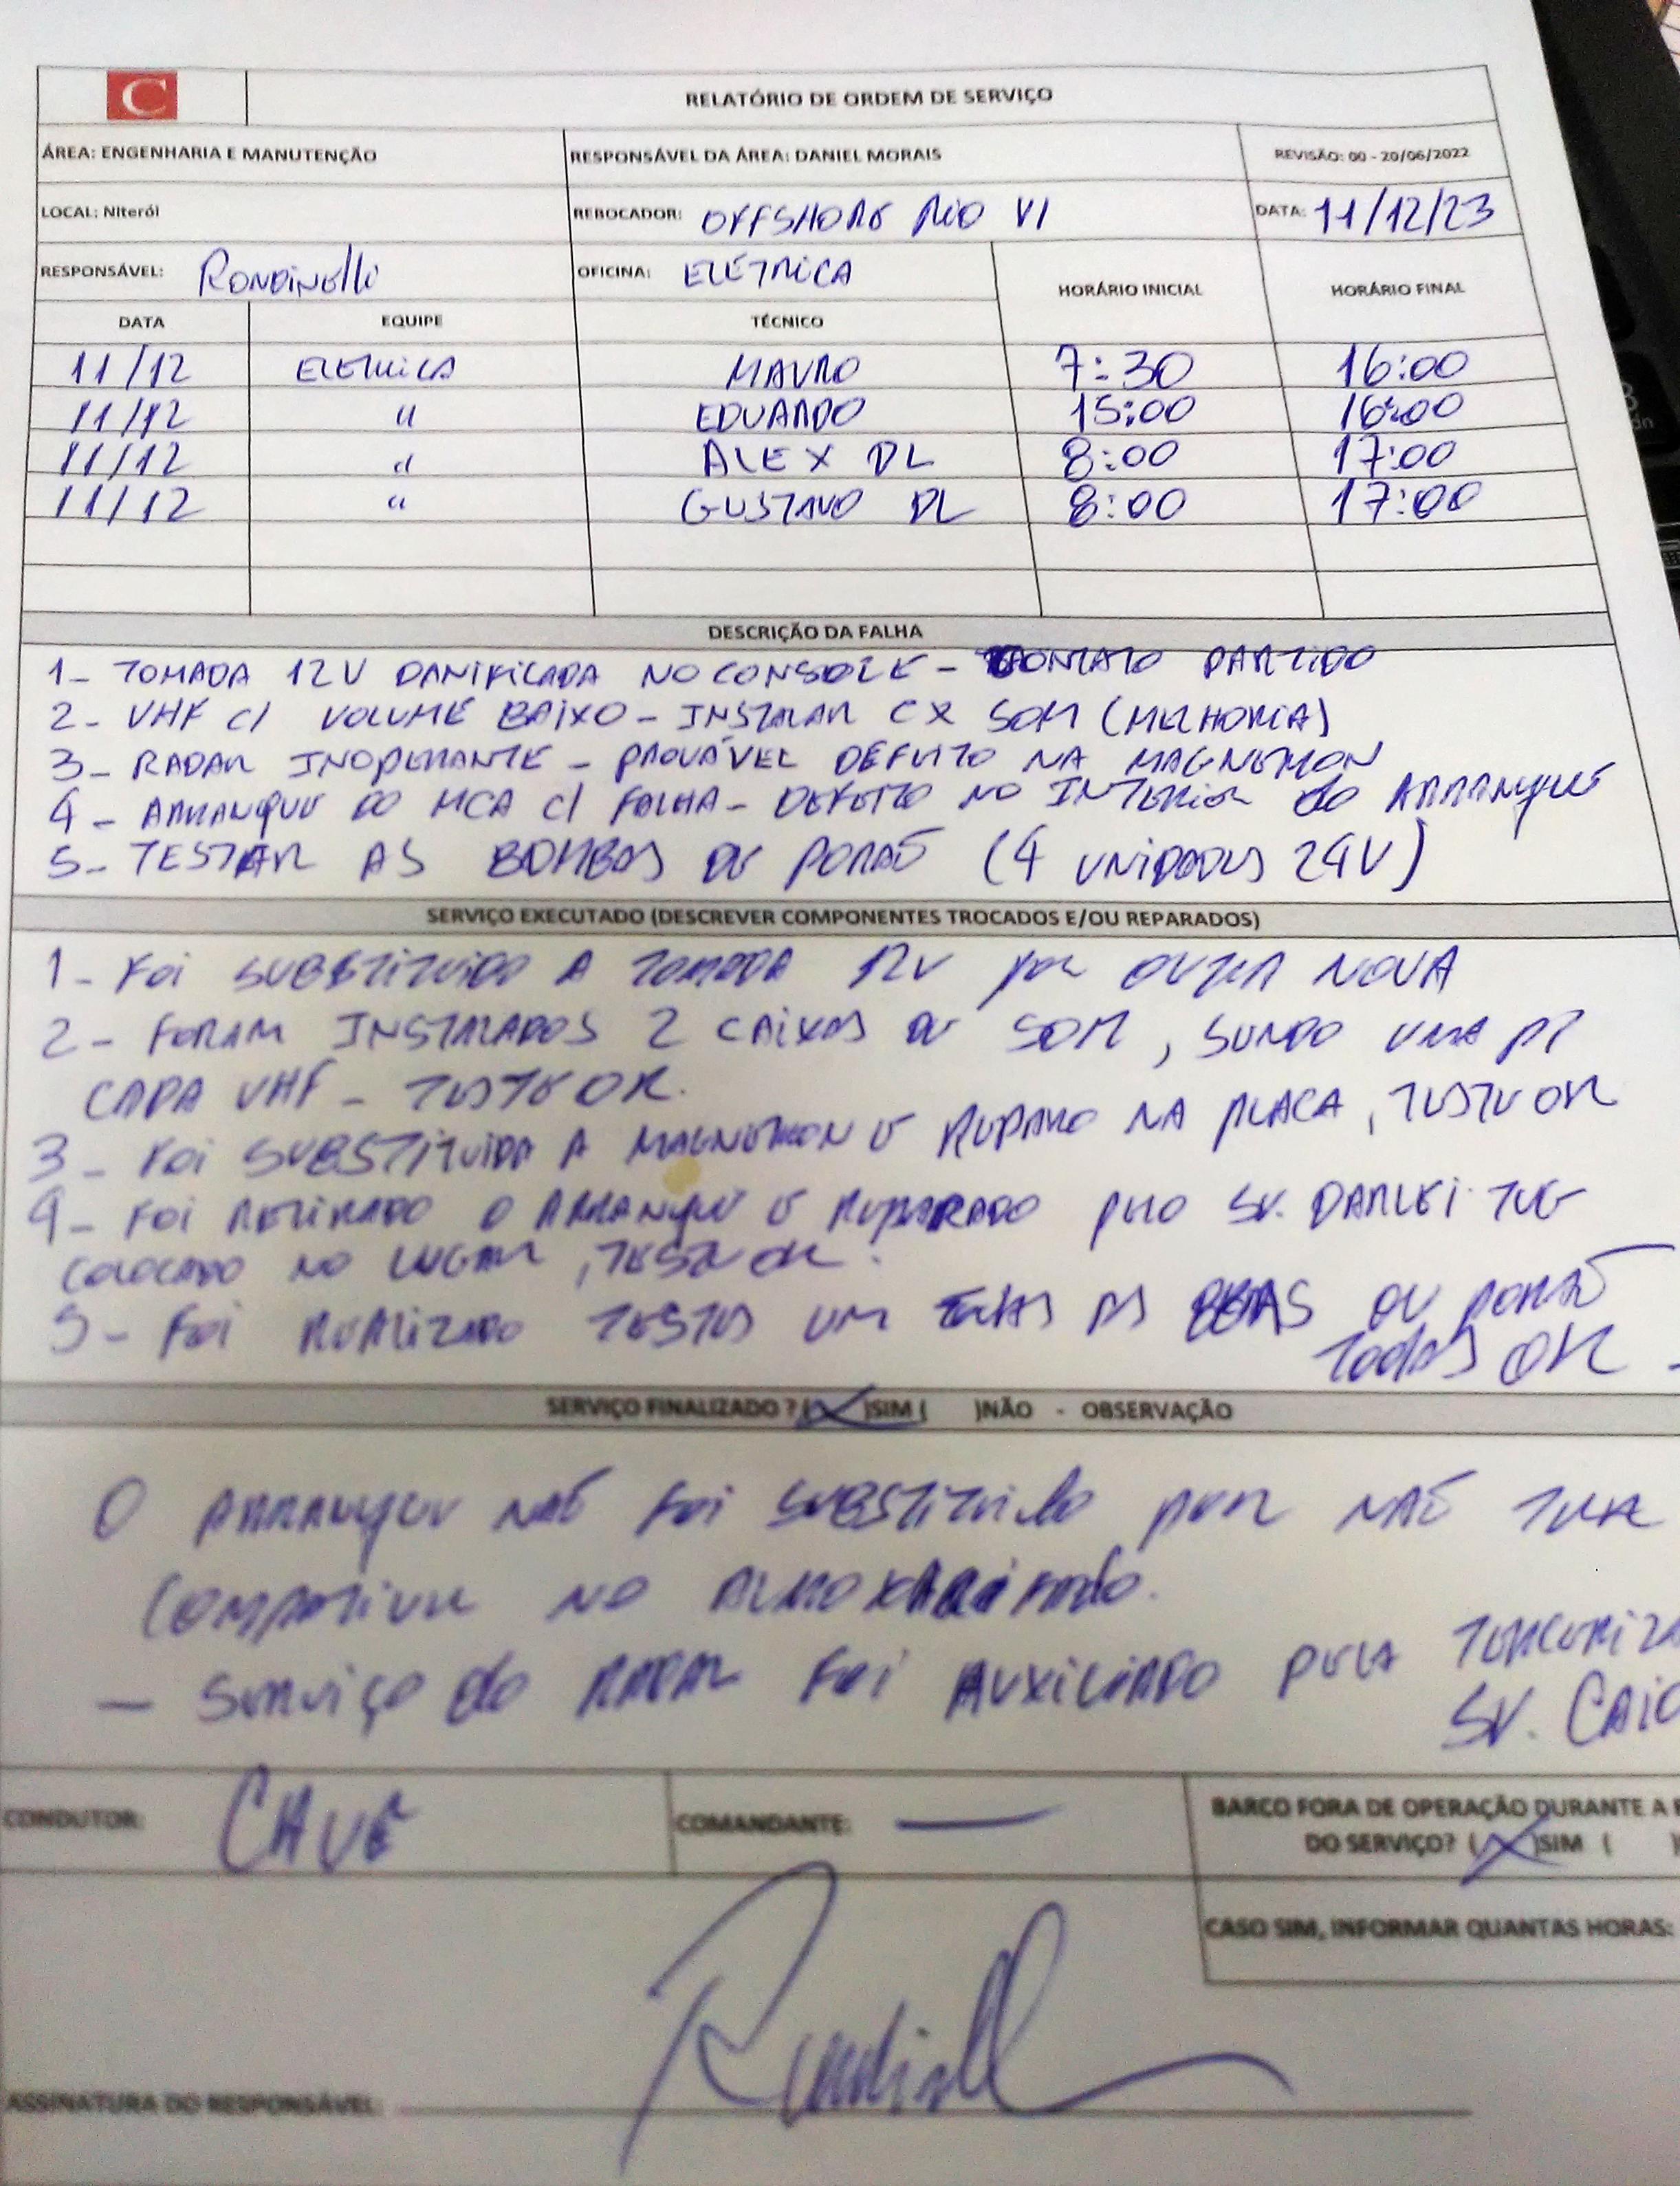 C
RELATÓRIO DE ORDEM DE SERVIÇO
ÁREA: ENGENHARIA E MANUTENÇÃO RESPONSÁVEL DA ÁREA: DANIEL MORAIS REVISÃO: 00 - 20/06/2022
LOCAL: Niterói REBOCADOR: OFFSHORE RIO VI DATA: 11/12/23
RESPONSÁVEL: Rondinelli OFICINA: ELÉTRICA HORÁRIO INICIAL HORÁRIO FINAL
DATA EQUIPE TÉCNICO
11/12 ELETRICA MAURO 7:30 16:00
11/12 " EDUARDO 15:00 16:00
11/12 " ALEX DL 8:00 17:00
11/12 " GUSTAVO DL 8:00 17:00
DESCRIÇÃO DA FALHA
1- TOMADA 12V DANIFICADA NO CONSOLE - CONTATO PARTIDO
2- VHF C/ VOLUME BAIXO - INSTALAR CX SOM (MELHORIA)
3- RADAR INOPERANTE - PROVÁVEL DEFEITO NA MAGNETRON
4- ARRANQUE DO MCA C/ FALHA - DEFEITO NO INTERIOR do ARRANQUE
5- TESTAR AS BOMBAS DE PORÃO (4 UNIDADES 24V)
SERVIÇO EXECUTADO (DESCREVER COMPONENTES TROCADOS E/OU REPARADOS)
1- Foi SUBSTITUIDO A TOMADA 12V por OUTRA NOVA
2- FORAM INSTALADOS 2 CAIXAS DE SOM, SENDO UMA P/
CADA VHF - TESTE OK.
3- Foi SUBSTITUIDA A MAGNETRON E REPARO NA PLACA, TESTE OK
4- FOI RETIRADO O ARRANQUE E REPARADO PELO SR. DARLEI
COLOCADO NO LUGAR, TESTE OK.
5- Foi REALIZADO TESTES EM TODAS AS BBAS DE PORÃO
Todas OK -
SERVIÇO FINALIZADO ? (X)SIM ( )NÃO - OBSERVAÇÃO
O ARRANQUE NÃO Foi SUBSTITUIDO POR NÃO TER
COMPATIVEL NO ALMOXARIFADO.
- SERVIÇO do RADAR FOI AUXILIADO PELA
SR. CAIO
CONDUTOR: CAUÊ COMANDANTE: — BARCO FORA DE OPERAÇÃO DURANTE A
DO SERVIÇO? (X)SIM (
CASO SIM, INFORMAR QUANTAS HORAS:
ASSINATURA DO RESPONSÁVEL: Rondinelli